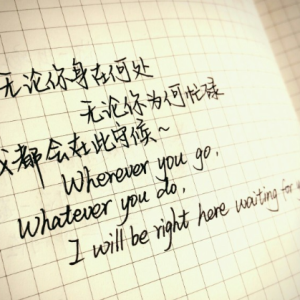 无论你身在何处
无论你为何忙碌
我都会在此守候~
Wherever you go,
Whatever you do,
I will be right here waiting for